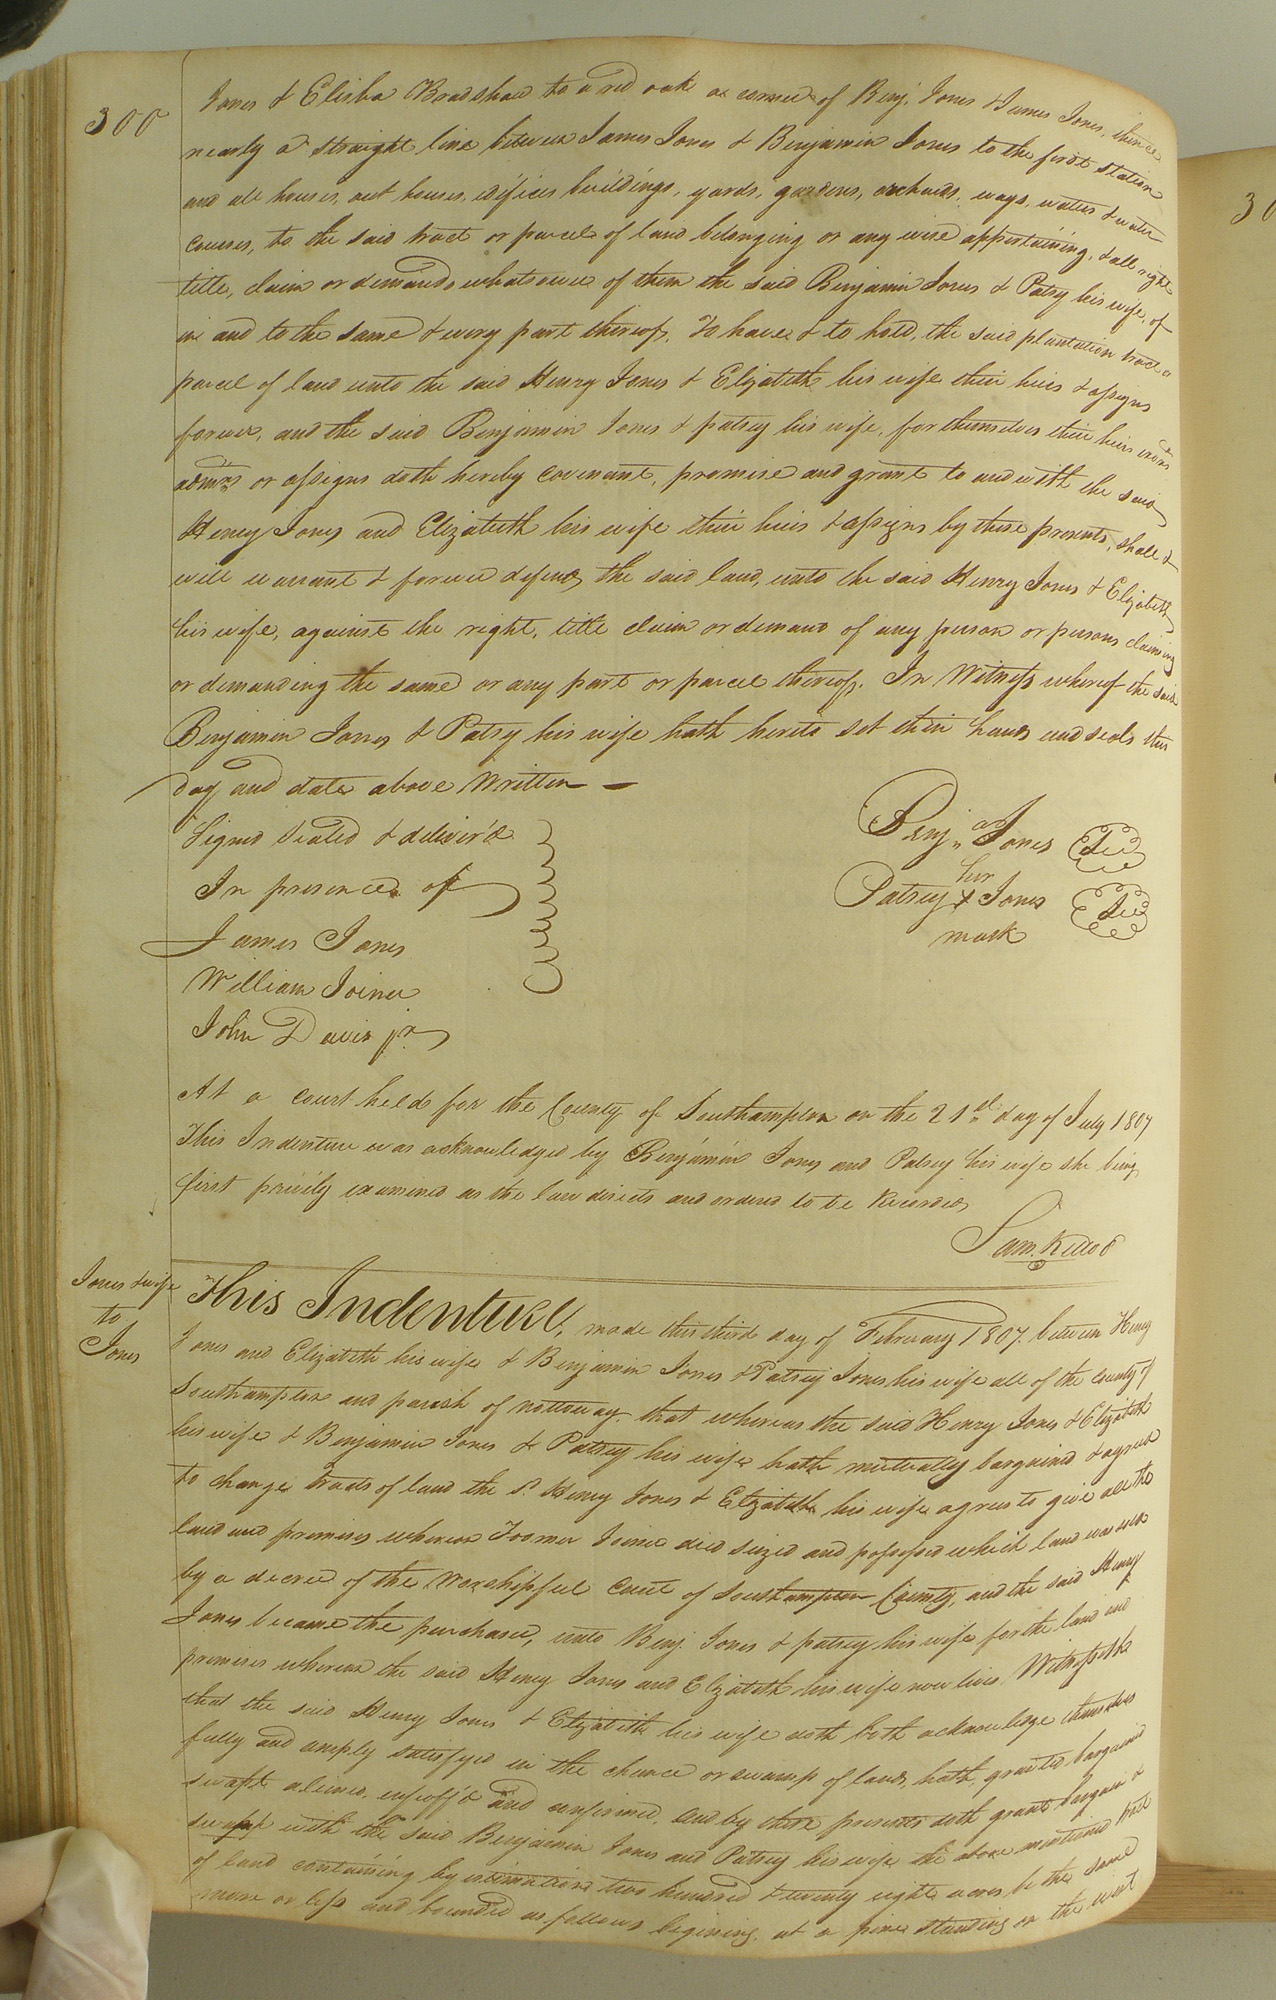 300
Jones & Elisha Bradshaw to a red oak a corner of Benj. Jones & James Jones, thence
nearly a straight line between James Jones & Benjamin Jones to the first station
and all houses, out houses, edifices buildings, yards, gardens, orchards, ways, waters & water
courses, to the said tract or parcel of land belonging or any wise appertaining, & all right
title, claim or demand whatsoever of them the said Benjamin Jones & Patsy his wife, of
in and to the same & every part thereof, To have & to hold, the said plantation tract or
parcel of land unto the said Henry Jones & Elizabeth his wife their heirs & assigns
forever, and the said Benjamin Jones & patsey his wife, for themselves their heirs exors
admrs or assigns doth hereby covenant, promise and grant to and with the said
Henry Jones and Elizabeth his wife their heirs & assigns by these presents, shall &
will warrant & forever defend, the said land, unto the said Henry Jones & Elizabeth
his wife, against the right, title claim or demand of any person or persons claiming
or demanding the same or any part or parcel thereof. In Witness whereof the said
Benjamin Jones & Patsy his wife hath hereto set their hands and seals this
day and date above Written —
Signed Sealed & deliver'd
In presence of
James Jones
William Joiner
John Davis jr.
Benja. Jones
her
Patsey X Jones
mark
At a court held for the County of Southampton on the 21st day of July 1807
This Indenture was acknowledged by Benjamin Jones and Patsey his wife she being
first privily examined as the law directs and ordered to be Recorded
Sam. Kello C
Jones & wife
to
Jones
This Indenture, made this third day of February 1807. between Henry
Jones and Elizabeth his wife & Benjamin Jones & Patsey Jones his wife all of the county of
Southampton and parish of nottoway. that whereas the said Henry Jones & Elizabeth
his wife & Benjamin Jones & Patsey his wife hath mutually bargained & agreed
to change tracts of land the Sd. Henry Jones & Elizabeth his wife agrees to give all the
land and premises whereon Joiner died seized and possessed which land was sold
by a decree of the Worshipful Court of Southampton County, and the said Henry
Jones became the purchaser, unto Benj. Jones & patsey his wife for the land and
premises whereon the said Henry Jones and Elizabeth his wife now lives Witnesseth
that the said Henry Jones & Elizabeth his wife doth both acknowledge themselves
fully and amply satisfyed in the chance or swamp of land, hath, granted bargained
swapt aliened, enfeoff'd and confirmed, and by these presents doth grant bargain &
swapp with the said Benjamin Jones and Patsey his wife the above mentioned part
of land containing by estimation two hundred & twenty eight acres be the same
more or less and bounded as follows begining, at a pine standing on the west
30